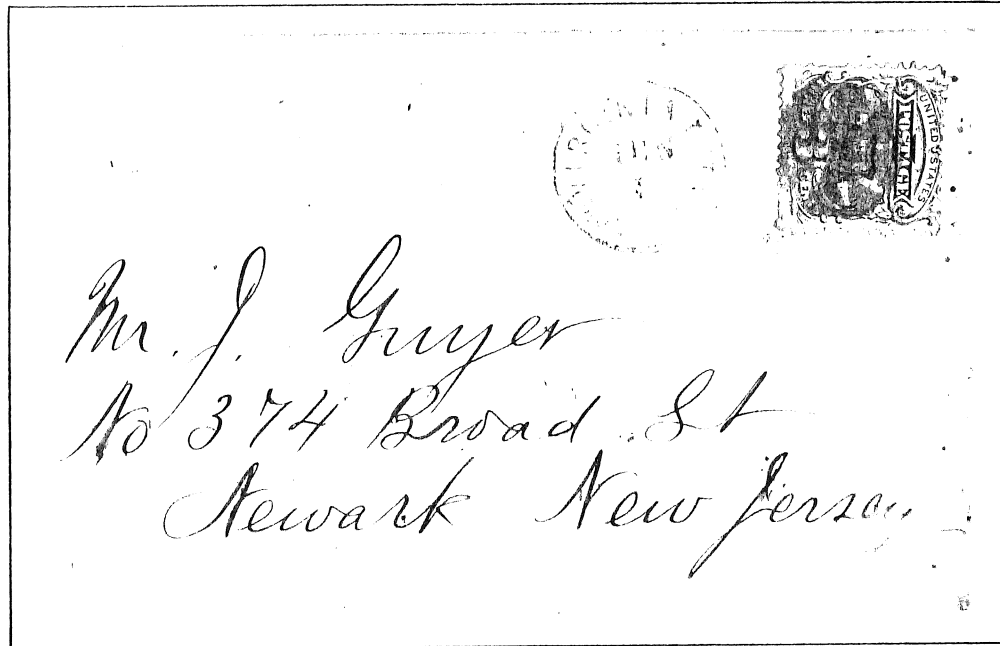 UNITED STATES
POSTAGE
Mr. J. Guyer
No 374 Broad St
Newark New Jersey